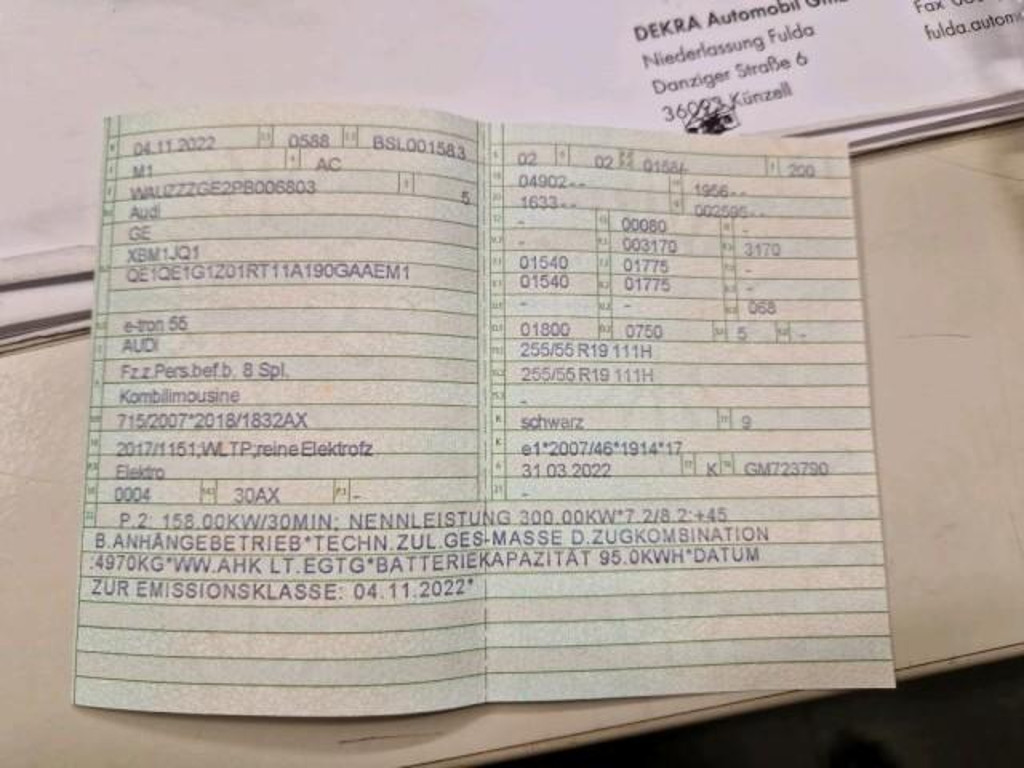 DEKRA Automobil
Niederlassung Fulda
Danziger Straße 6
36093 Künzell
Fax
fulda.automo
04.11.2022 0588 BSL001583
M1 AC
WAUZZZGE2PB006803 5
Audi
GE
XBM1JQ1
QE1QE1G1Z01RT11A190GAAEM1
e-tron 55
AUDI
Fz.z.Pers.bef.b. 8 Spl.
Kombilimousine
715/2007*2018/1832AX
2017/1151;WLTP;reine Elektrofz
Elektro
0004 30AX -
02 02 0158/- 200
04902-- 1956--
1633-- 002595--
- 00080 -
- 003170 3170
01540 01775 -
01540 01775 -
- - 068
01800 0750 5 -
255/55 R19 111H
255/55 R19 111H
-
schwarz 9
e1*2007/46*1914*17
31.03.2022 K GM723790
-
P.2: 158.00KW/30MIN; NENNLEISTUNG 300.00KW*7.2/8.2:+45
B.ANHÄNGEBETRIEB*TECHN.ZUL.GES-MASSE D.ZUGKOMBINATION
:4970KG*WW.AHK LT.EGTG*BATTERIEKAPAZITÄT 95.0KWH*DATUM
ZUR EMISSIONSKLASSE: 04.11.2022*